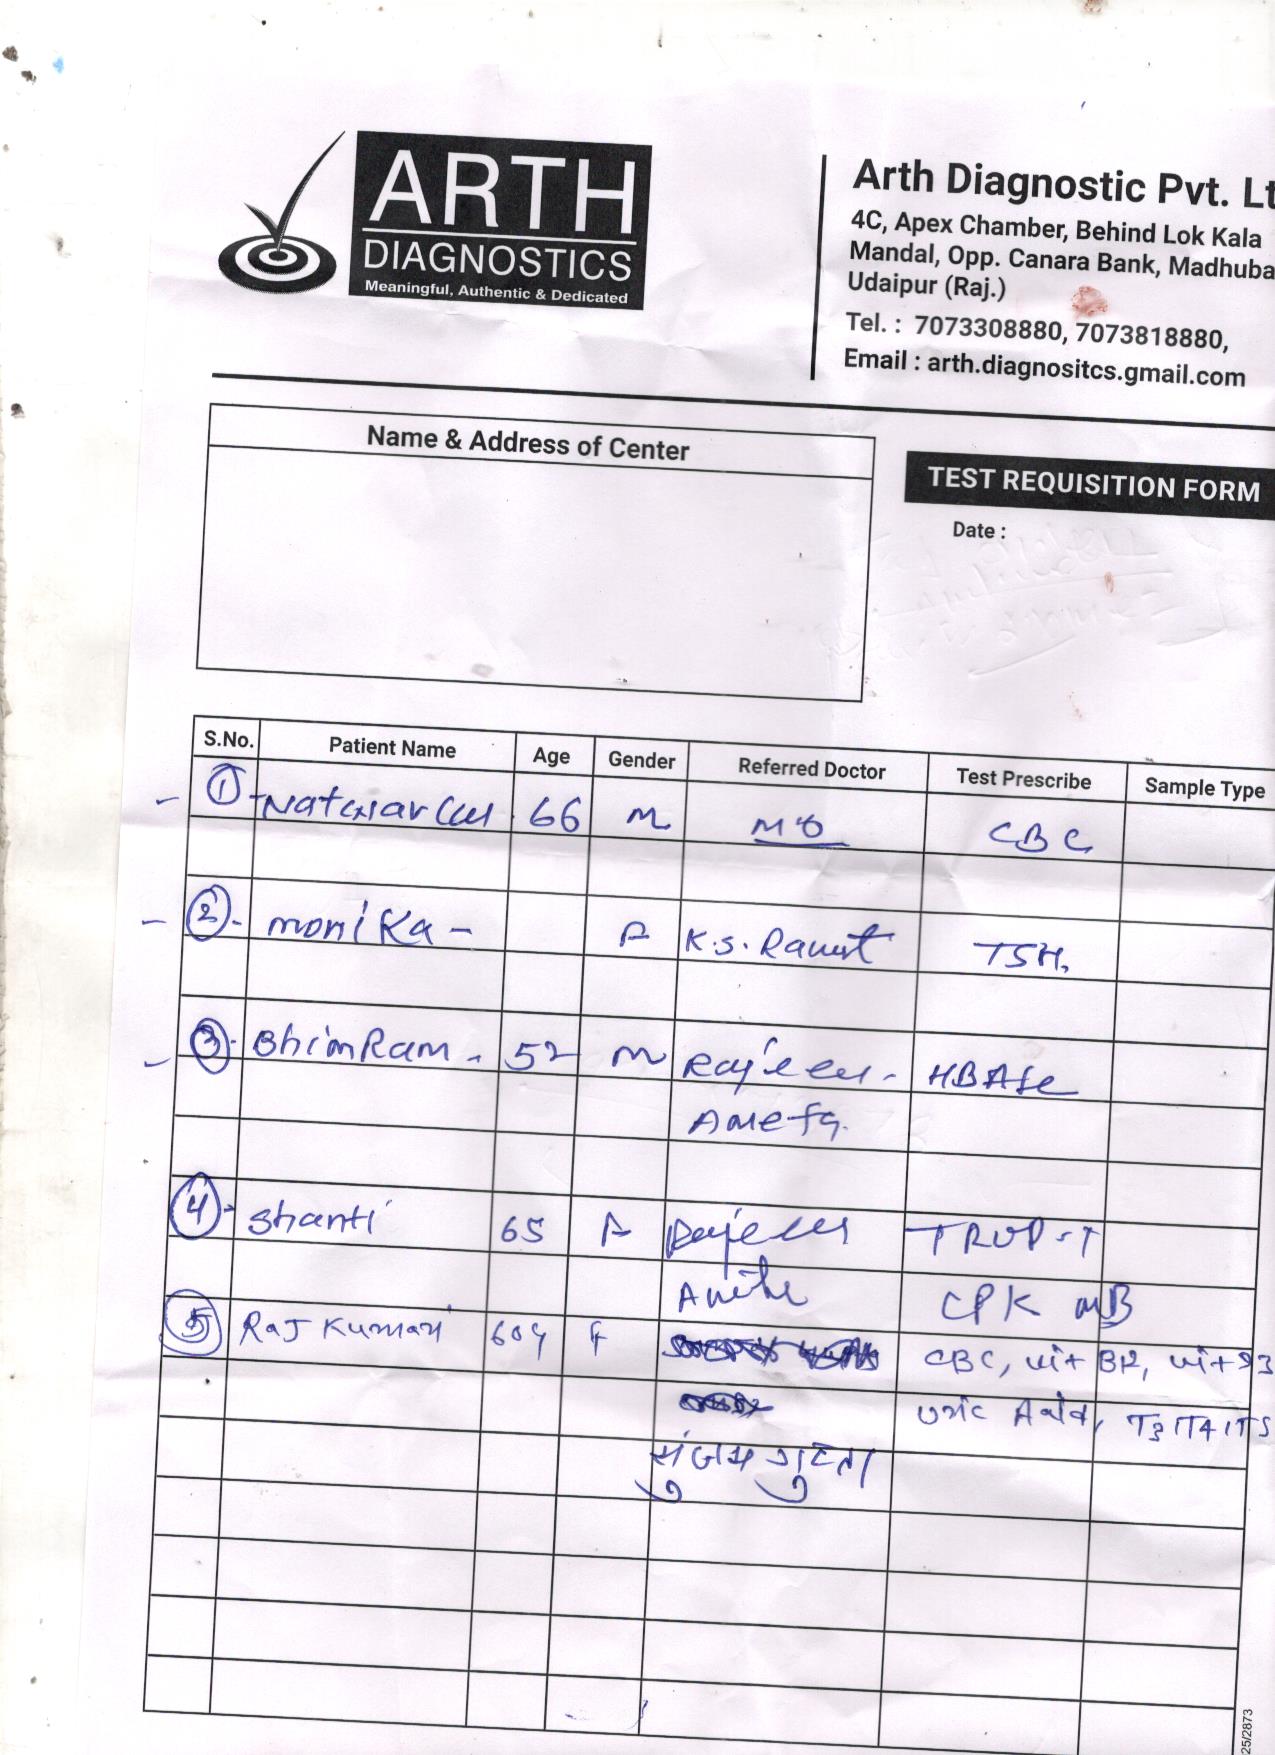 ARTH
DIAGNOSTICS
Meaningful, Authentic & Dedicated
Arth Diagnostic Pvt. Lt
4C, Apex Chamber, Behind Lok Kala
Mandal, Opp. Canara Bank, Madhuba
Udaipur (Raj.)
Tel. : 7073308880, 7073818880,
Email : arth.diagnositcs.gmail.com
Name & Address of Center
TEST REQUISITION FORM
Date :
S.No. Patient Name Age Gender Referred Doctor Test Prescribe Sample Type
1 66 M CBC
2 - monika - F K.S. TSH,
3 - BhimRam - 52 M
4 - Shanti 65 F TROP-T
CPK MB
5 Raj Kumari 60y F CBC, vit B12, vit D3
Uric Acid, T3 / T4 / TS
गुप्ता
25/2873